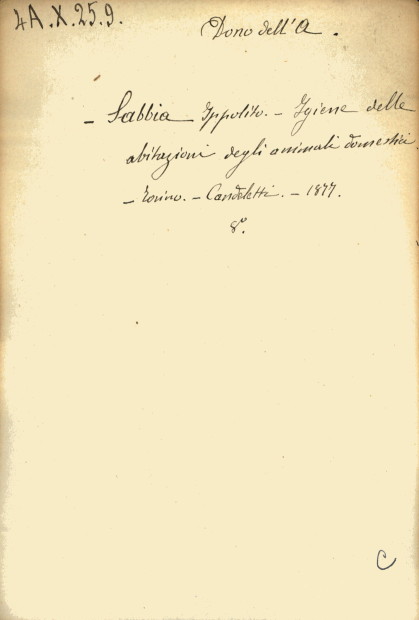 4A.X.25.9.
Dono dell'A.
- Sabbia Ippolito. - Igiene delle
abitazioni degli animali domestici
- Torino. - Candeletti. - 1877.
8°.
C